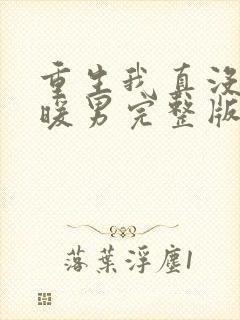 重生我真没
暖男完整版
落葉浮塵1